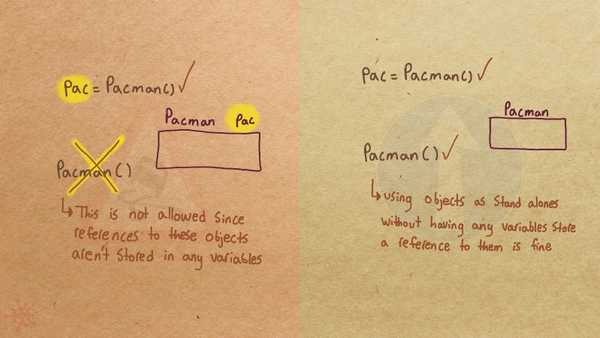 Pac = Pacman()
Pacman Pac
Pacman()
This is not allowed Since
references to these objects
aren't Stored in any variables
Pac = Pacman()
Pacman
Pacman()
using objects as Stand alones
without having any variables Store
a reference to them is fine